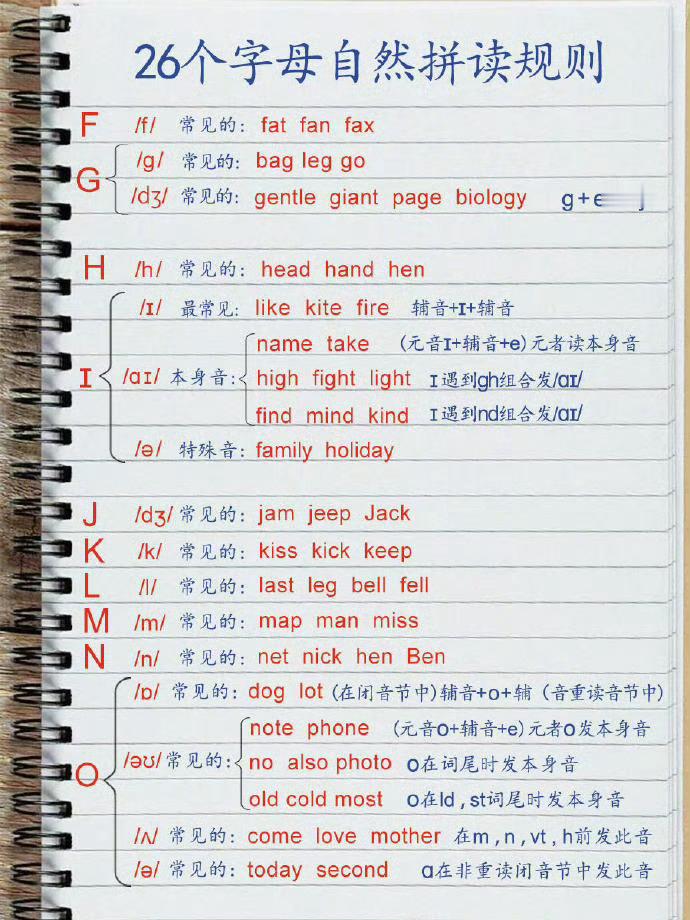 26个字母自然拼读规则
F /f/ 常见的: fat fan fax
G
/g/ 常见的: bag leg go
/dʒ/ 常见的: gentle giant page biology g+e j
H /h/ 常见的: head hand hen
I
/ɪ/ 最常见: like kite fire 辅音+ɪ+辅音
/ɑɪ/ 本身音:
name take (元音ɪ+辅音+e)元者读本身音
high fight light ɪ遇到gh组合发/ɑɪ/
find mind kind ɪ遇到nd组合发/ɑɪ/
/ə/ 特殊音: family holiday
J /dʒ/ 常见的: jam jeep Jack
K /k/ 常见的: kiss kick keep
L /l/ 常见的: last leg bell fell
M /m/ 常见的: map man miss
N /n/ 常见的: net nick hen Ben
O
/ɒ/ 常见的: dog lot (在闭音节中)辅音+o+辅 (音重读音节中)
/əʊ/ 常见的:
note phone (元音o+辅音+e)元者o发本身音
no also photo o在词尾时发本身音
old cold most o在ld,st词尾时发本身音
/ʌ/ 常见的: come love mother 在m,n,vt,h前发此音
/ə/ 常见的: today second ɑ在非重读闭音节中发此音